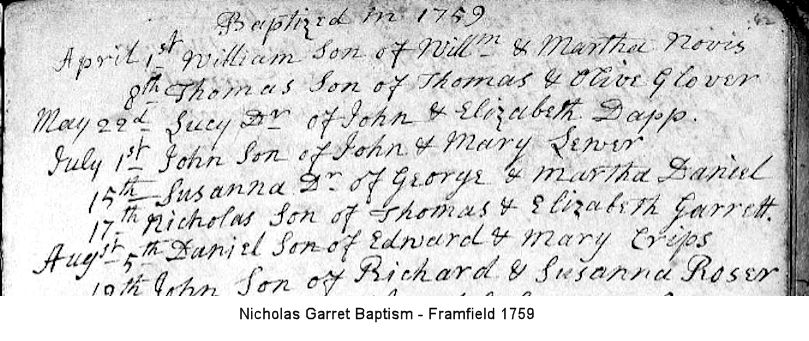 Baptized in 1759
April 1st William Son of Willm & Martha Novis
8th Thomas Son of Thomas & Olive Glover
May 22d Lucy Dr of John & Elizabeth Dapp.
July 1st John Son of John & Mary Lewer
15th Susanna Dr of George & Martha Daniel
17th Nicholas Son of Thomas & Elizabeth Garrett.
Augst 5th Daniel Son of Edward & Mary Crips
John Son of Richard & Susanna Roser
Nicholas Garret Baptism - Framfield 1759